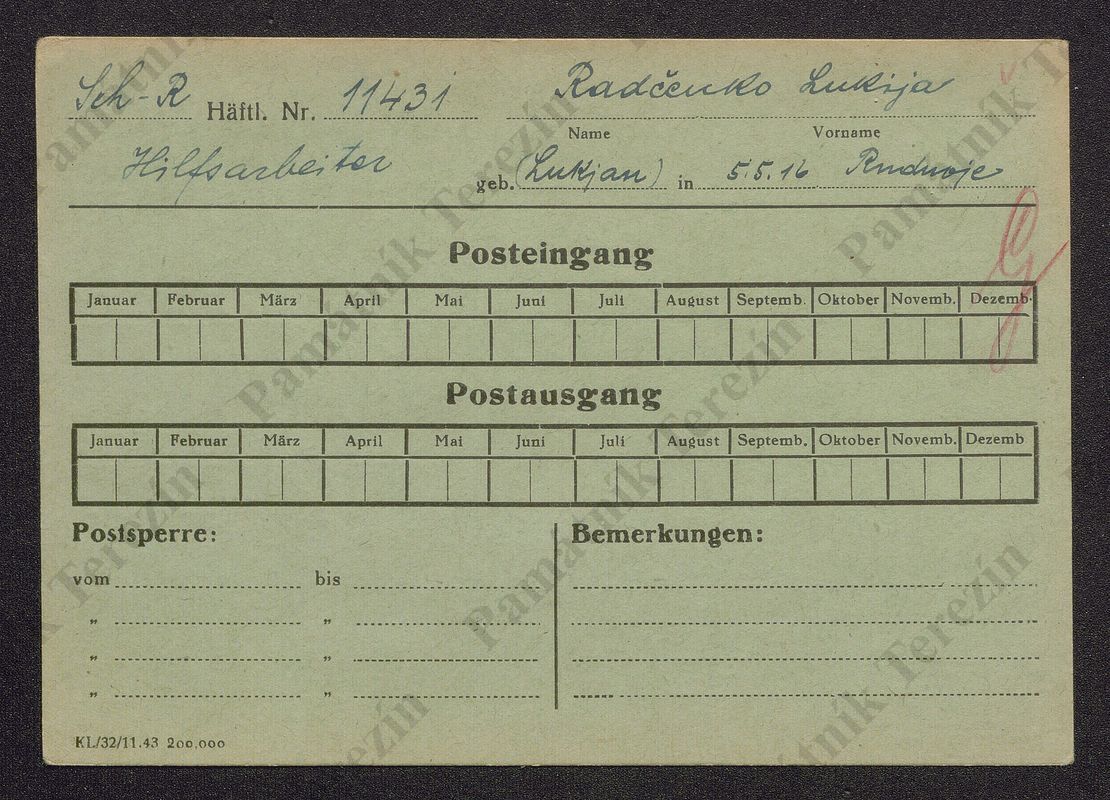 Sch-R Häftl. Nr. 11431 Radčenko Lukija
Name Vorname
Hilfsarbeiter geb. (Lukjan) in 5.5.16 Rudnoje
Posteingang
Januar Februar März April Mai Juni Juli August Septemb. Oktober Novemb. Dezemb.
Postausgang
Januar Februar März April Mai Juni Juli August Septemb. Oktober Novemb. Dezemb
Postsperre: Bemerkungen:
vom bis
" "
" "
" "
KL/32/11.43 200.000
Památník Terezín